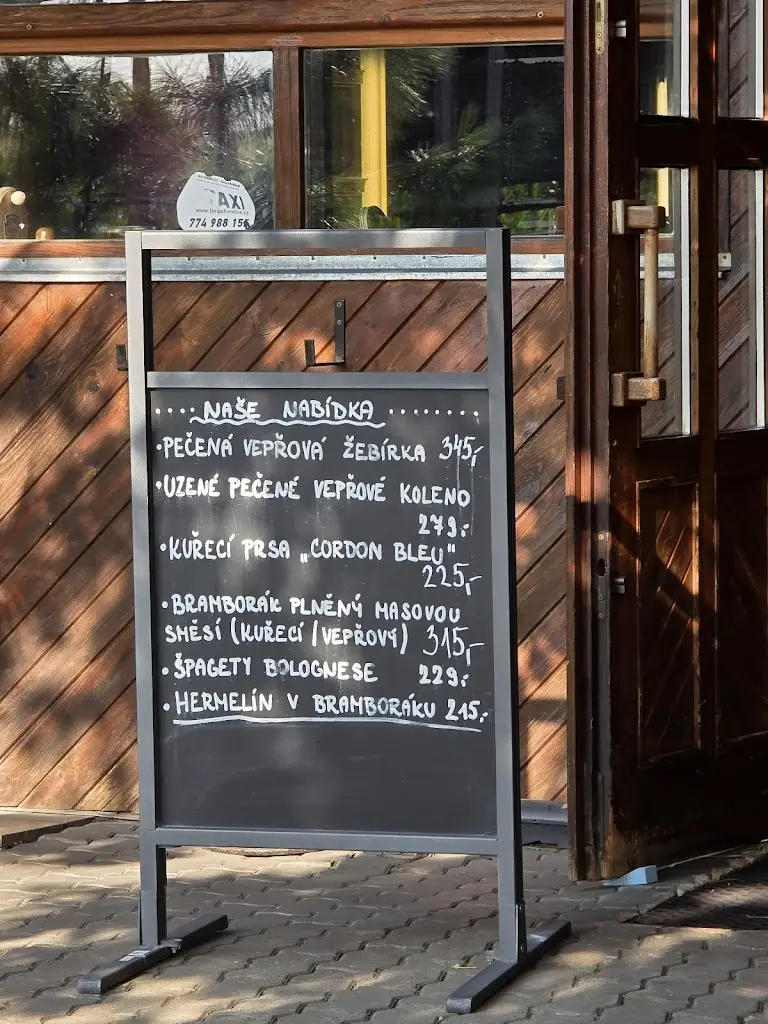 TAXI
774 988 15
.... NAŠE NABÍDKA .......
• PEČENÁ VEPŘOVÁ ŽEBÍRKA 345,-
• UZENÉ PEČENÉ VEPŘOVÉ KOLENO
279:-
• KUŘECÍ PRSA „CORDON BLEU"
225,-
• BRAMBORÁK PLNĚNÝ MASOVOU
SMĚSÍ (KUŘECÍ / VEPŘOVÝ) 315,-
• ŠPAGETY BOLOGNESE 229:-
• HERMELÍN V BRAMBORÁKU 215,-